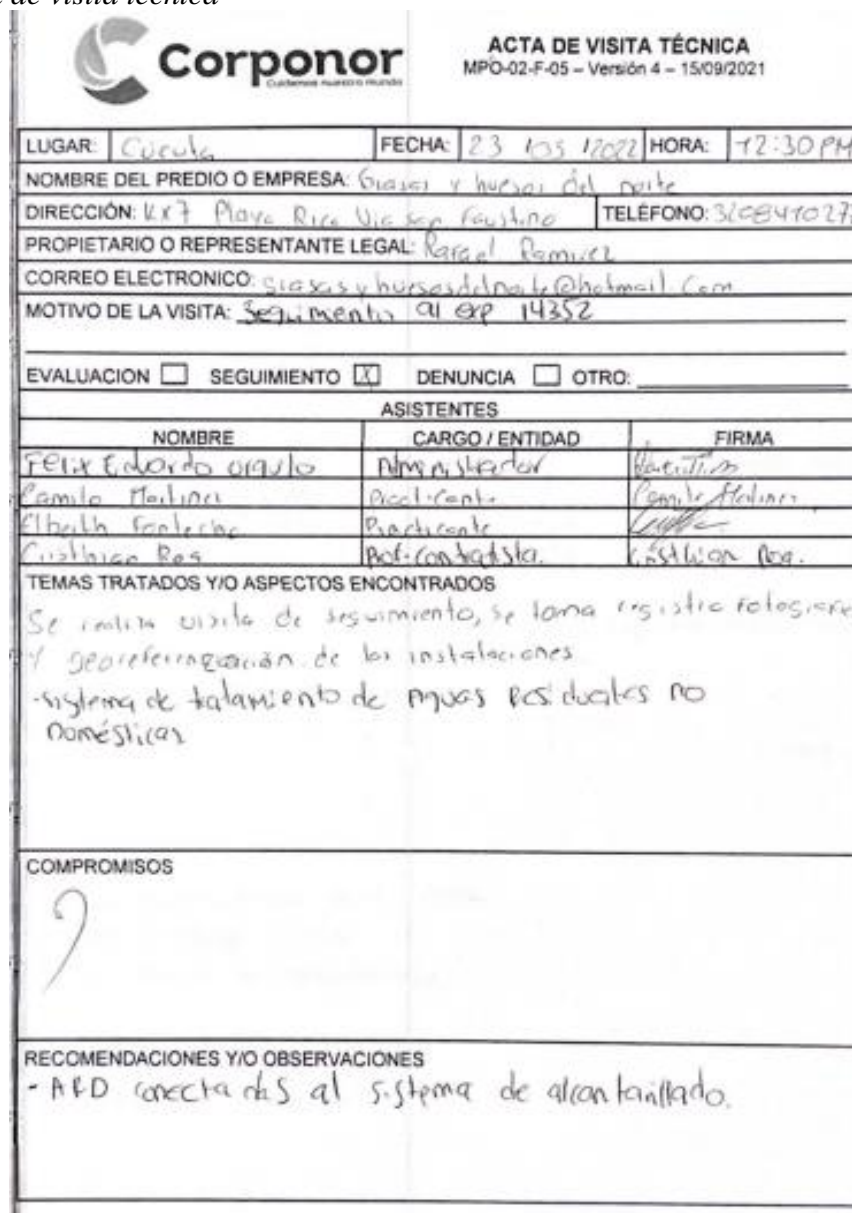 de visita técnica
Corponor
Cuidamos nuestro mundo
ACTA DE VISITA TÉCNICA
MPO-02-F-05 – Versión 4 – 15/09/2021
LUGAR: Cúcuta FECHA: 23 105 12022 HORA: 12:30 PM
NOMBRE DEL PREDIO O EMPRESA: Grasas y huesos del norte
DIRECCIÓN: Kx7 Playa Rica Via san Faustino TELÉFONO: 320841027
PROPIETARIO O REPRESENTANTE LEGAL: Rafael Ramirez
CORREO ELECTRONICO: grasasyhuesosdelnorte@hotmail.com
MOTIVO DE LA VISITA: Seguimento al exp 14352
EVALUACION SEGUIMIENTO X DENUNCIA OTRO:
ASISTENTES
NOMBRE CARGO / ENTIDAD FIRMA
Felix Eduardo Administrador
Camilo Practicante Camilo
Practicante
Cristhian Roa Prof. contratista. Cristhian Roa.
TEMAS TRATADOS Y/O ASPECTOS ENCONTRADOS
Se realiza visita de seguimiento, se toma registro
y georeferenciación de las instalaciones
-sistema de tratamiento de Aguas Residuales no
Domésticas
COMPROMISOS
RECOMENDACIONES Y/O OBSERVACIONES
- ARD conectadas al sistema de alcantarillado.